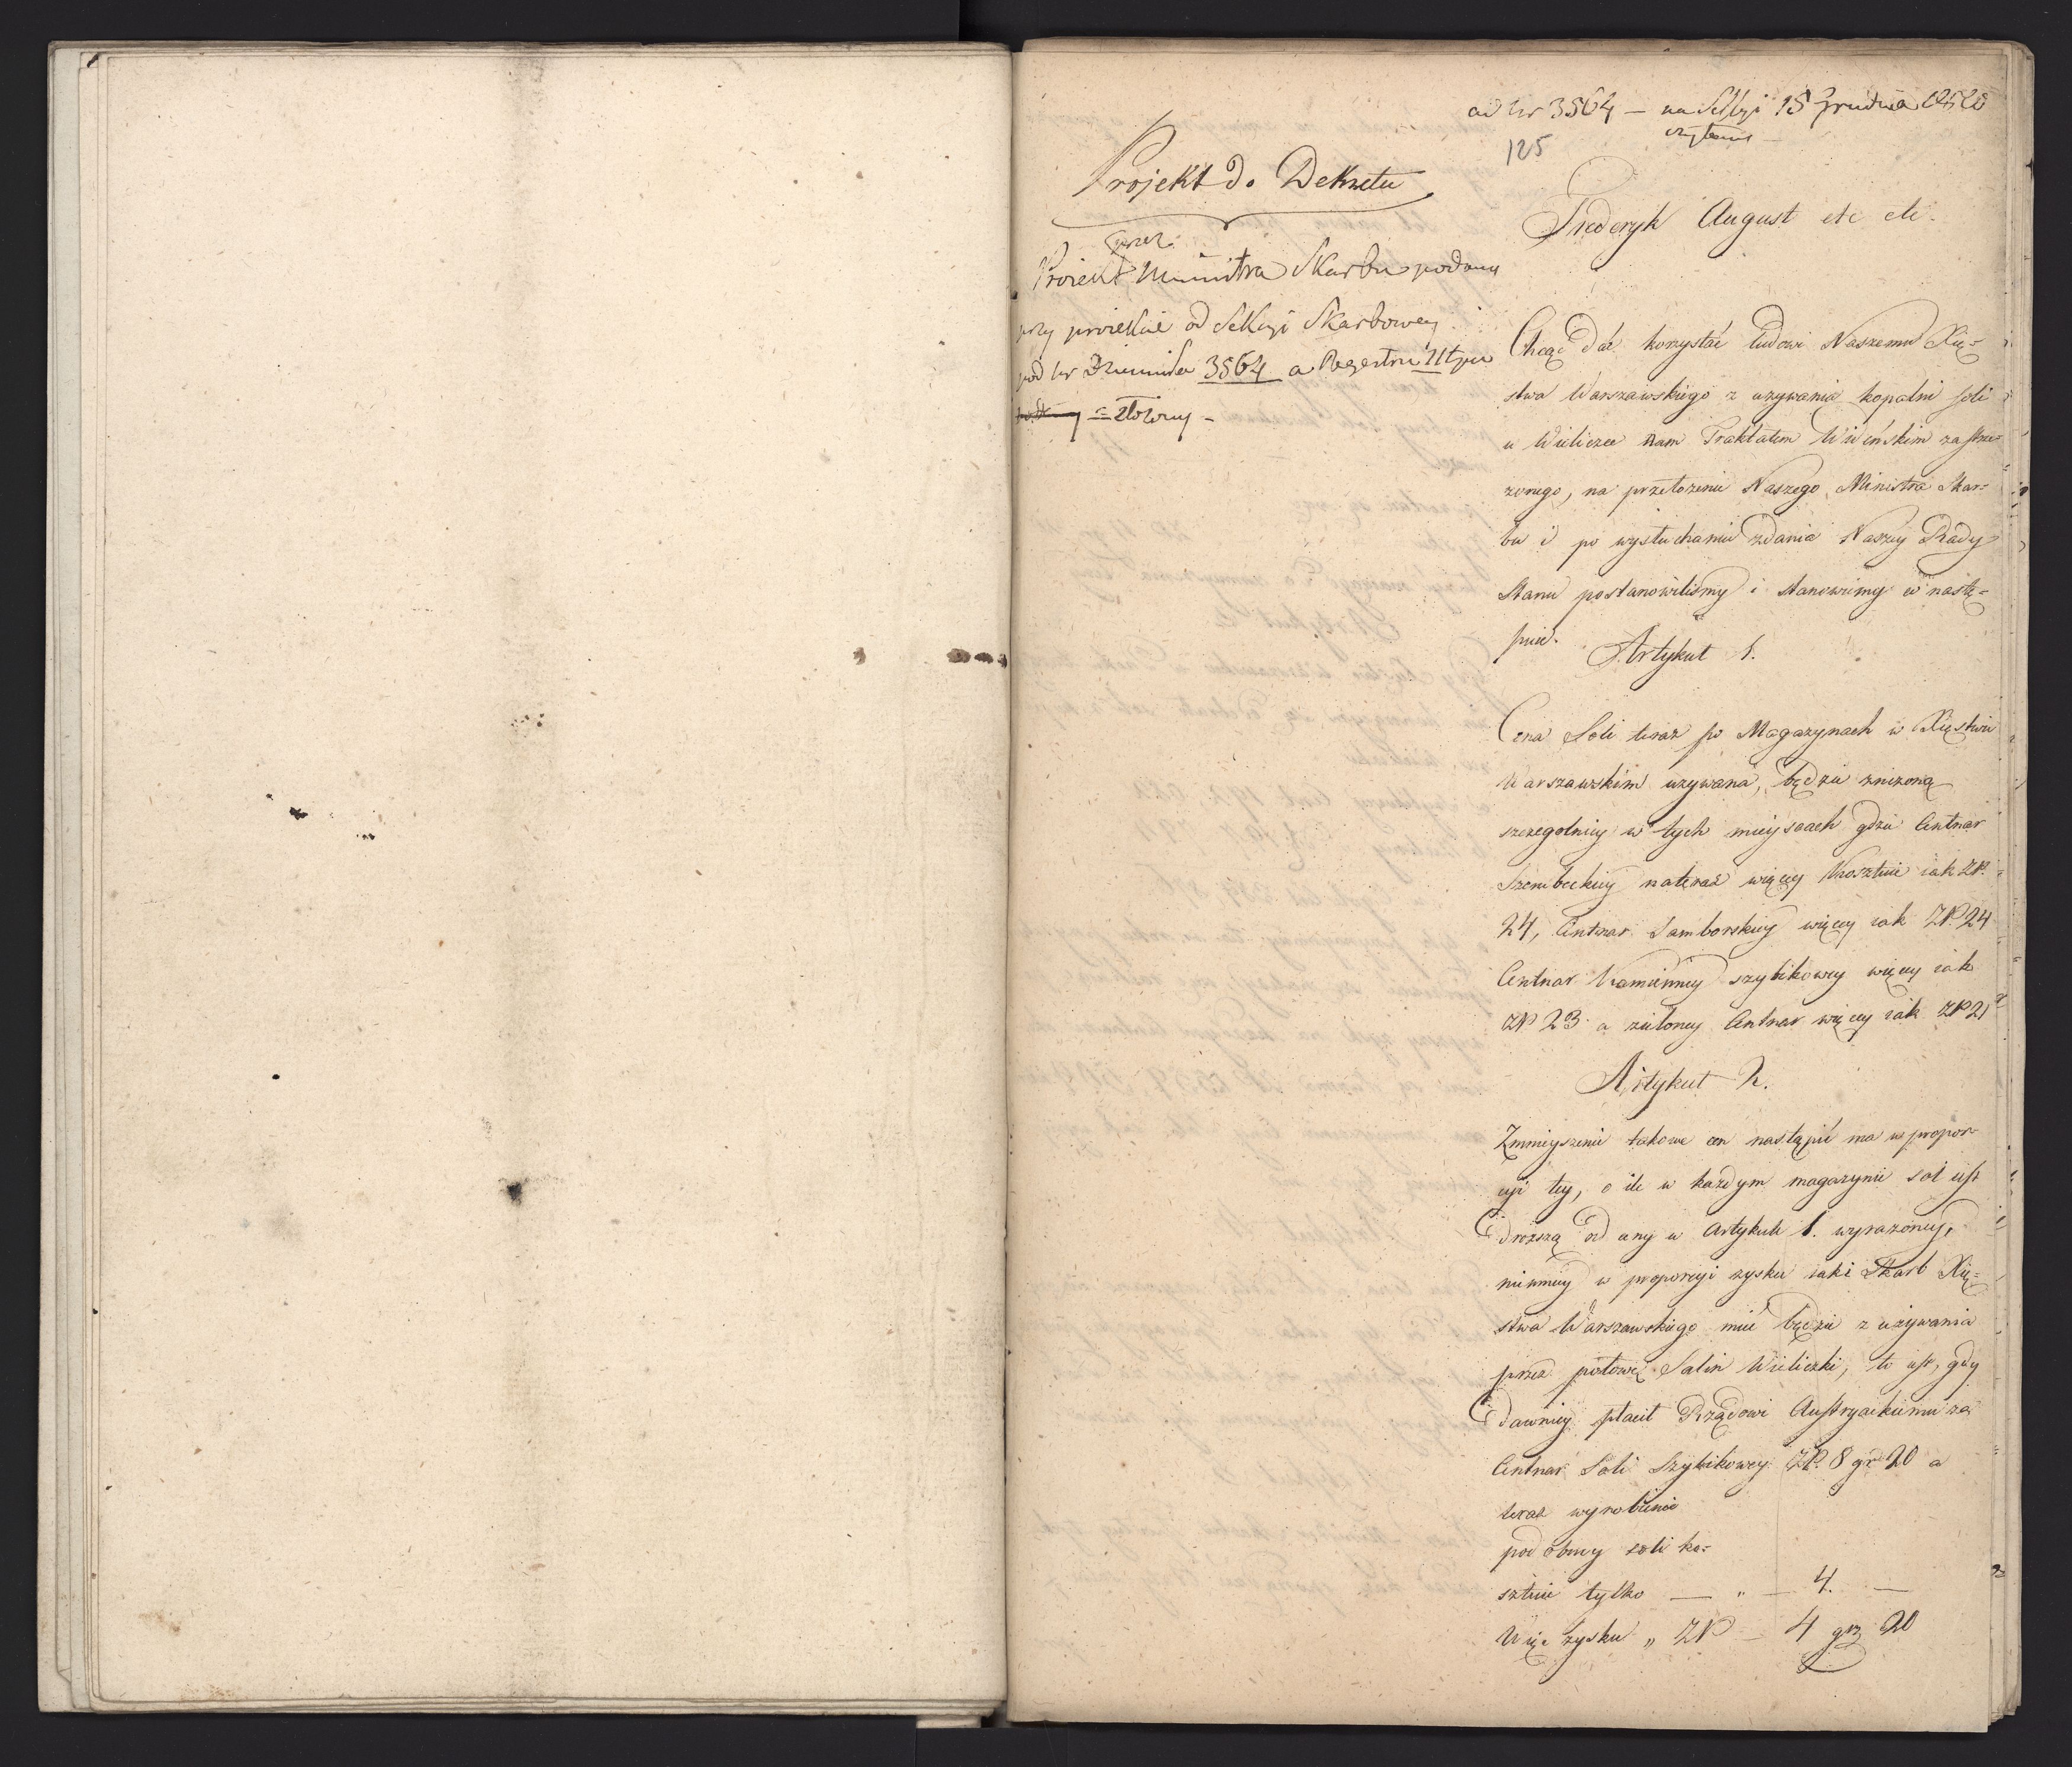 ad Nr 3564 — na Sessyi 15 Grudnia
czytany
125
Projekt do Dekretu
przez
Proiekt Ministra Skarbu podany
przy proiekcie od Sekcyi Skarbowey
pod Nr Dziennika 3564 a Regestru
= złożony –
Frederyk August etc etc.
Chcąc dać korzystać ludowi Naszemu Xię=
stwa Warszawskiego z używania kopalni soli
w Wieliczce nam Traktatem Wiedeńskim zastrze=
żonego, na przełożenie Naszego Ministra Skar=
bu i po wysłuchaniu zdania Naszey Rady
Stanu postanowiliśmy i stanowimy co nastę=
puie.
Artykuł 1.
Cena Soli teraz po Magazynach w Xięstwie
Warszawskim używana, będzie zniżoną
szczegolniey w tych mieyscach gdzie Centnar
Szembeckiey nateraz więcey kosztuie iak ZP.
24, Centnar Samborskiey więcey iak ZP. 24
Centnar kamienney szybikowey więcey iak
ZP 23 a zieloney Centnar więcey iak ZP 21
Artykuł 2.
Zmnieyszenie takowe cen nastąpić ma w propor=
cyi tey, o ile w każdym magazynie sol iest
droższą od ceny w Artykule 1. wyrażoney,
niemniey w proporcyi zysku iaki Skarb Xię=
stwa Warszawskiego mieć będzie z używania
przez połowę Salin Wieliczki, to iest, gdy
dawniey płacił Rządowi Austryackiemu za
Centnar Soli Szybikowey ZP. 8 gr 20 a
teraz wyrobienie
podobney soli ko=
sztuie tylko — " — 4. —
Więc zysku " ZP — 4 gr 20